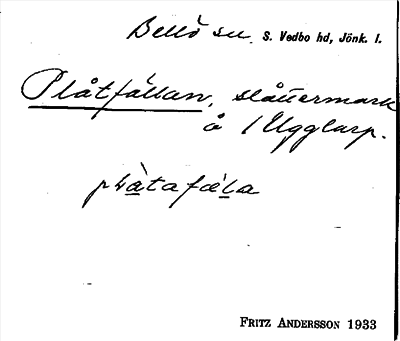 Bellö sn. S. Vedbo hd, Jönk. l.
Plåtfällan, slåttermark
å / Ugglarp.
plå̀tafæla
FRITZ ANDERSSON 1933